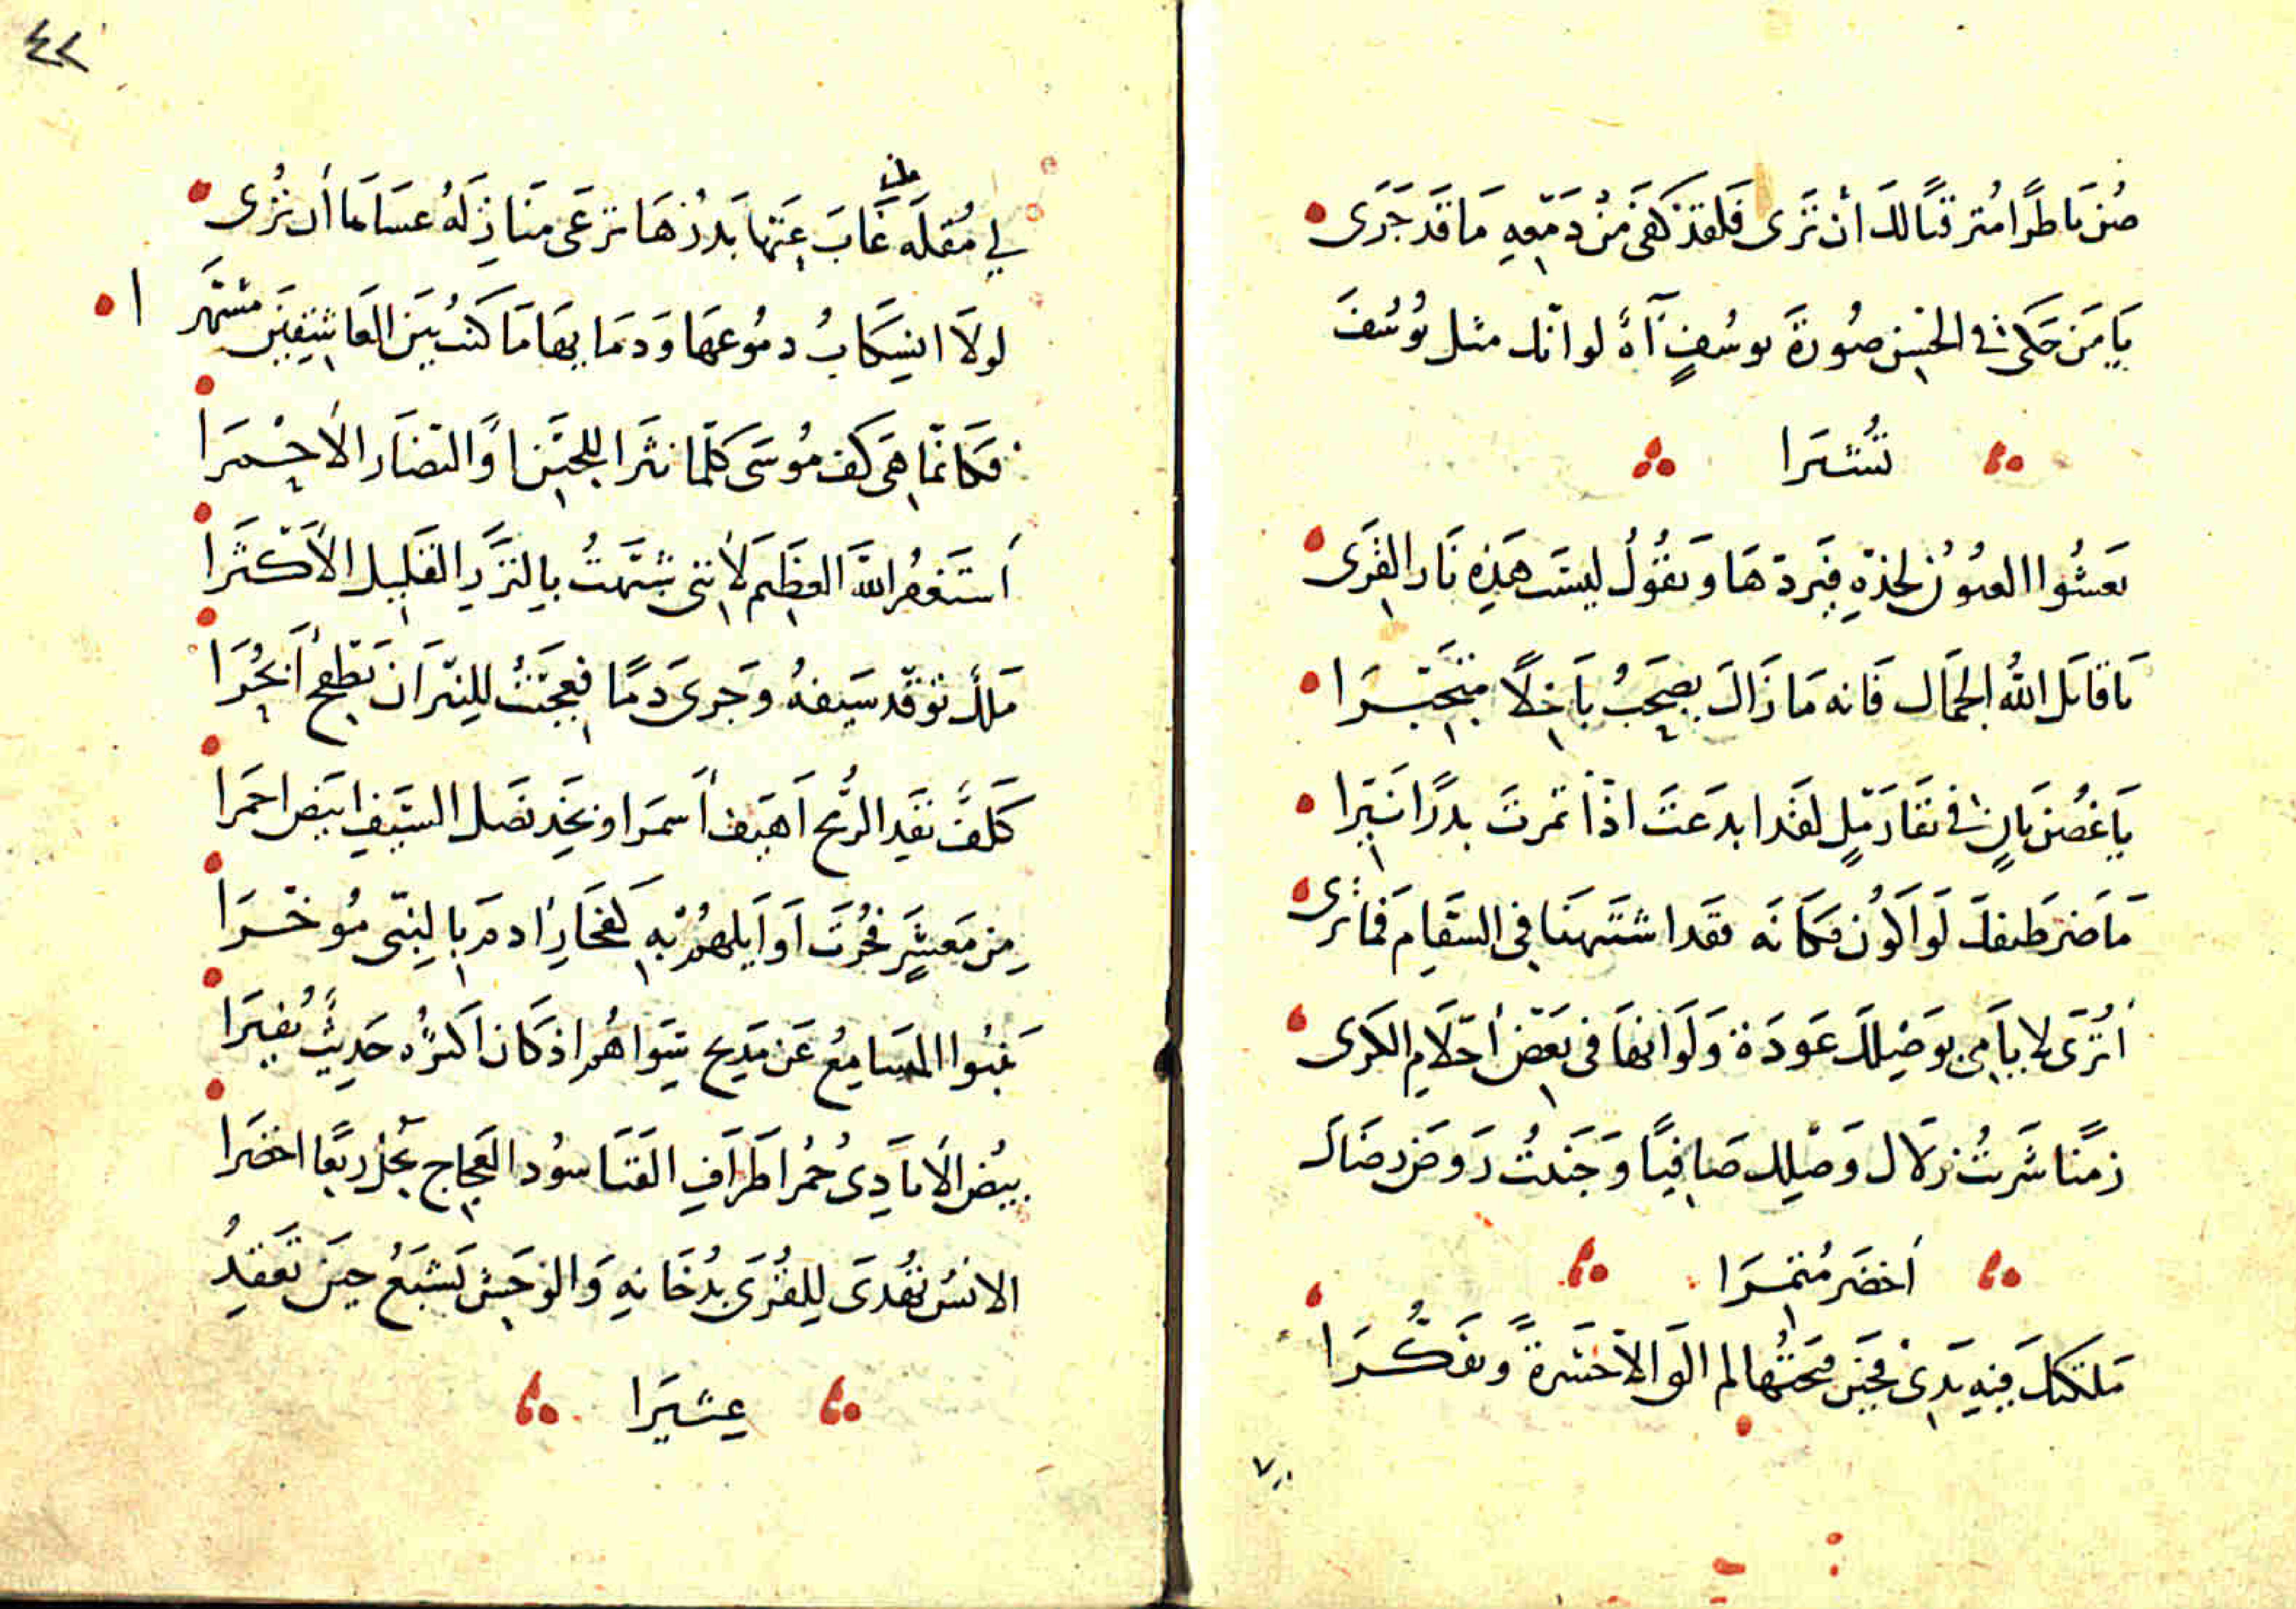 صُن نَاظِرًا مُترقبًا لكَ أن تَرَى فَلقد كفَى مِنْ دَمْعِهِ مَا قَد جَرَى
يَا مَن حَكى في الحُسْنِ صُورَةَ يوسُفٍ آهً لو انّك مثل يُوسُفَ
تُشْتَرا
تعشُوا العيُون لخدّهِ فيَردّهَا وَيقُولُ ليسَت هَذِهِ نَار القِرَى
يَا قاتَل اللهُ الجمَال فَانه مَا زَالَ يصْحَبُ بَاخِلًا متجَبّرَا
يَا غُصْنَ بَانٍ في نقَا رَمْلٍ لقَد ابدَعتَ اذْ أثمرتَ بدرًا نَيّرا
مَا ضَر طَيفكَ لَو اكُون مكَانَه فقَد اشتَبهنَا في السقَام فَما نُرى
أتُرَى لايامِي بوَصْلِكَ عَودَة وَلَو انهَا في بَعْض أحْلَامِ الكَرَى
زمَنًا شَربْتُ زلَال وَصْلِك صَافِيًا وَجَنيْتُ رَوضَ رضَاكَ
أخضَر مُثمِرَا
مَلكتكَ فيه يَدِي فحينَ فتحتُهَا لم القَ الا حَسْرةً وتفَكُّرَا
لِي مُقلَة غَابَ عَنْهَا بَدرُهَا تَرعَى مَنازِلَهُ عسَاهَا أن تُرَى
لولَا انسِكَابُ دمُوعهَا وَدمَا بهَا مَا كنتُ بَينَ العَاشِقِينَ مشَهّرا
فكَانمَا هِيَ كف مُوسَى كلّما نثرَ اللجَيْنَ اوِ النضَارَ الأحْمَرَا
أستَغفِرُ اللهَ العَظِيمَ لأنني شَبّهتُ بالنَزْرِ القلِيل الأكْثَرَا
مَلكٌ توَقّد سَيفهُ وَجَرى دَمًا فعجبْتُ للنِيرَان تَطْفح أبْحُرَا
كَلفٌ بقَدِ الرُّمحِ اهيَف أسمرَا وبخَدِ نصَل السَيفِ ابيَض احمَرا
مِن مَعشَرٍ فخُرَت أوَايلهُمْ بهِ كفَخَارِ ادَم بالنبِيّ مُؤخَرَا
نَبَوا المسَامِعُ عَن مَدِيح سِوَاهُمُ اذ كَان اكثرُه حَدِيثًا يُفتَرَا
بِيضُ الأيَادِى حُمرُ اطرَافِ القَنَا سوُد العَجَاج بكل ربعًا اخضَرا
الانسُ تُهْدَى لِلقُرى بدُخَانِهِ وَالوَحشُ يَشبَعُ حِينَ تَعقِدُ
عِشيَرا